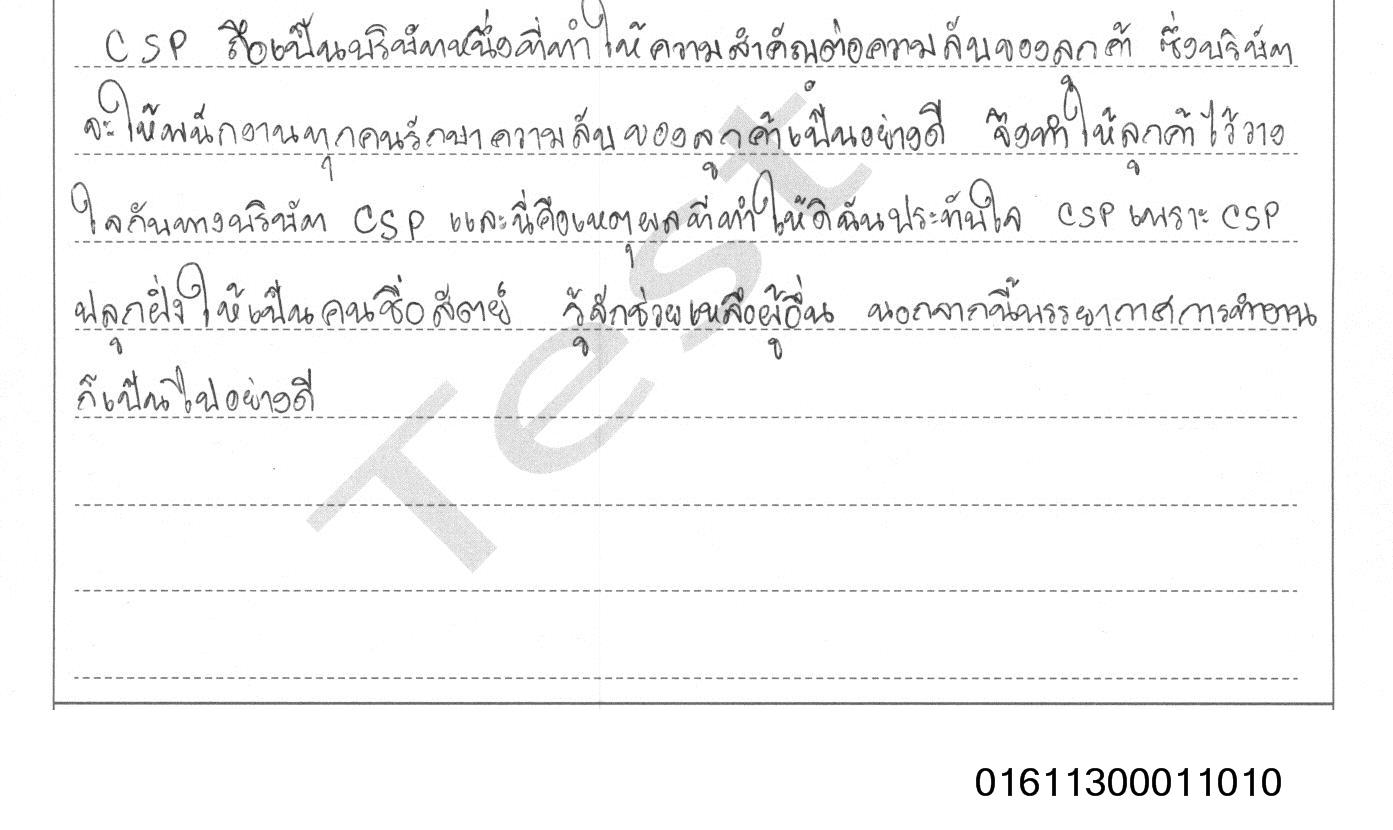 CSP ถือเป็นบริษัทหนึ่งที่ทำให้ความสำคัญต่อความลับของลูกค้า ซึ่งบริษัท
จะให้พนักงานทุกคนรักษาความลับของลูกค้าเป็นอย่างดี จึงทำให้ลูกค้าไว้วาง
ใจกับทางบริษัท CSP และนี่คือเหตุผลที่ทำให้ดิฉันประทับใจ CSP เพราะ CSP
ปลูกฝั่งให้เป็นคนซื่อสัตย์ รู้จักช่วยเหลือผู้อื่น นอกจากนี้บรรยากาศการทำงาน
ก็เป็นไปอย่างดี
Test
01611300011010